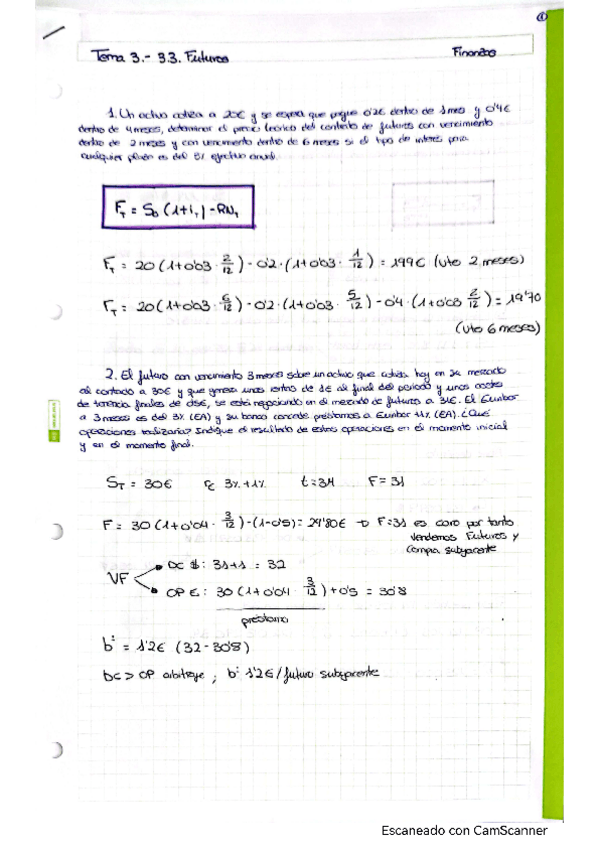 ①
Tema 3.- 3.3. Futuros
Finanzas
1. Un activo cotiza a 20€ y se espera que pague 0'2€ dentro de 1 mes y 0'4€
dentro de 4 meses, determinar el precio teórico del contrato de futuros con vencimiento
dentro de 2 meses y con vencimiento dentro de 6 meses si el tipo de interés para
cualquier plazo es del 3% efectivo anual.
F_T = S_0 (1+i_T) - RN_T
F_T = 20 (1+0'03 · 2/12) - 0'2 · (1+0'03 · 1/12) = 19'9€ (vto 2 meses)
F_T = 20 (1+0'03 · 6/12) - 0'2 · (1+0'03 · 5/12) - 0'4 · (1+0'03 2/12) = 19'70
(vto 6 meses)
2. El futuro con vencimiento 3 meses sobre un activo que cotiza hoy en su mercado
al contado a 30€ y que genera unas rentas de 1€ al final del periodo y unos costes
de tenencia finales de 0'5€, se está negociando en el mercado de futuros a 31€. El Euribor
a 3 meses es del 3% (EA) y su banco concede préstamos a Euribor +1% (EA). ¿Qué
operaciones realizaría? Indique el resultado de estas operaciones en el momento inicial
y en el momento final.
S_T = 30€ 3%+1% F = 31
F = 30 (1+0'04 · 3/12) - (1-0'5) = 29'80€ → F=31 es caro por tanto
vendemos Futuros y
compra subyacente
VF
DC $: 31+1 = 32
OP €: 30 (1+0'04 · 3/12) + 0'5 = 30'8
préstamo
b° = 1'2€ (32-30'8)
DC > OP arbitraje ; b° 1'2€/futuro subyacente
Escaneado con CamScanner